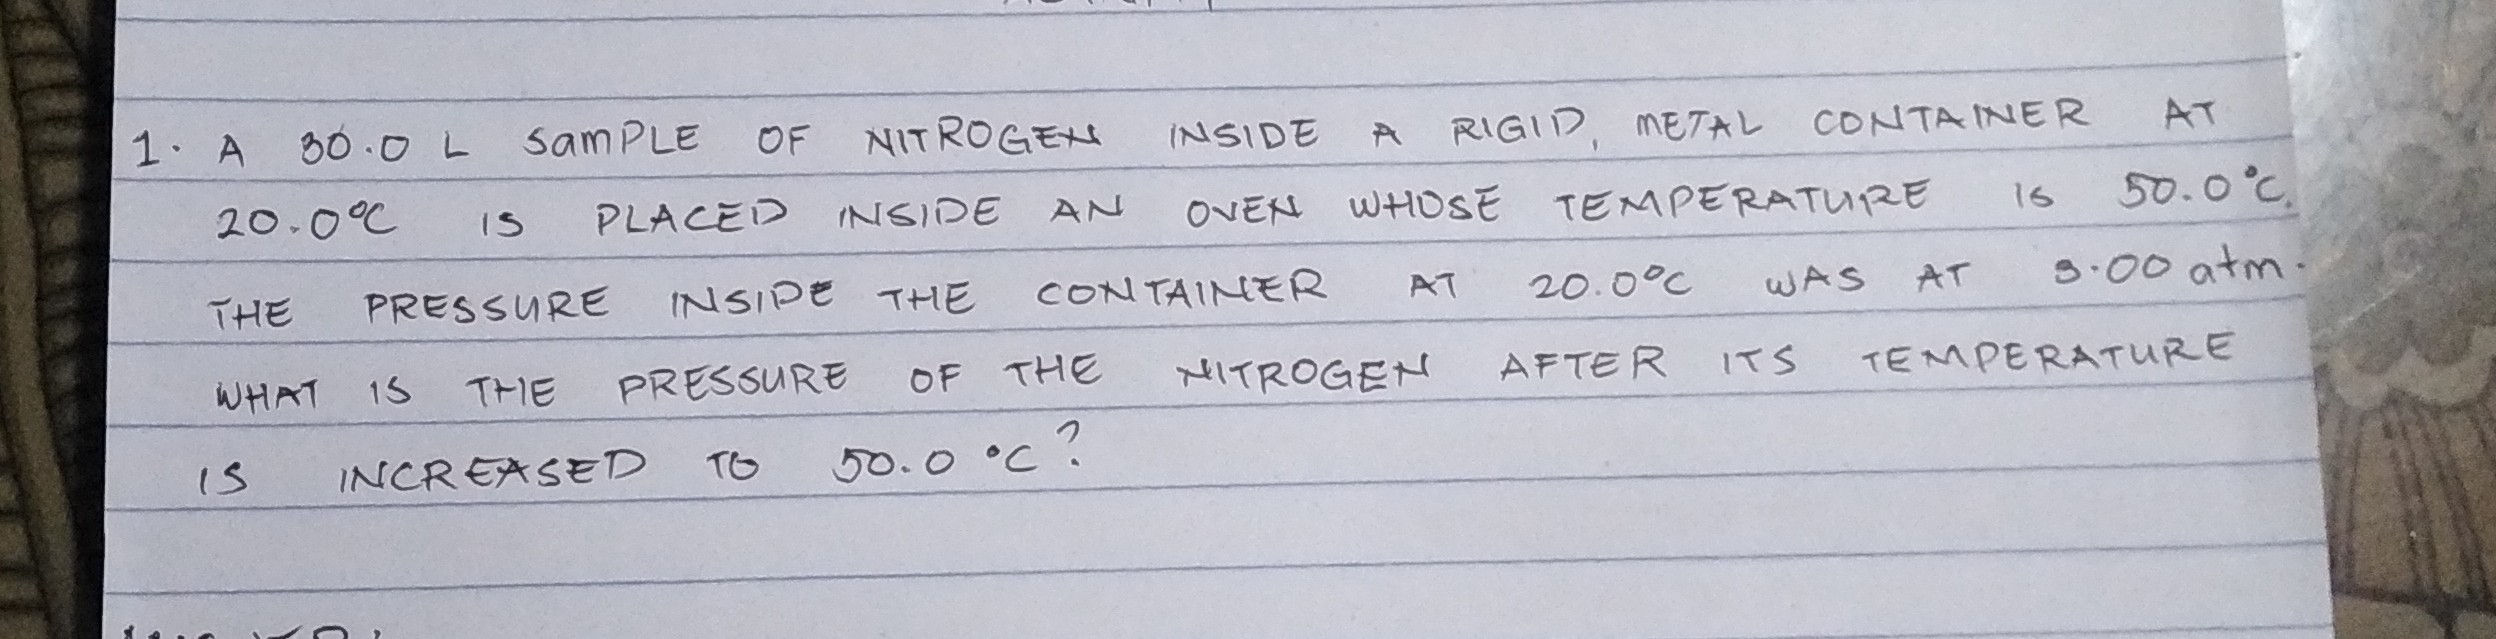 1. A 30.0 L SamPLE OF NITROGEN INSIDE A RIGID, METAL CONTAINER AT
20.0°C IS PLACED INSIDE AN OVEN WHOSE TEMPERATURE IS 50.0°C.
THE PRESSURE INSIDE THE CONTAINER AT 20.0°C WAS AT 3.00 atm.
WHAT IS THE PRESSURE OF THE NITROGEN AFTER ITS TEMPERATURE
IS INCREASED TO 50.0 °C?